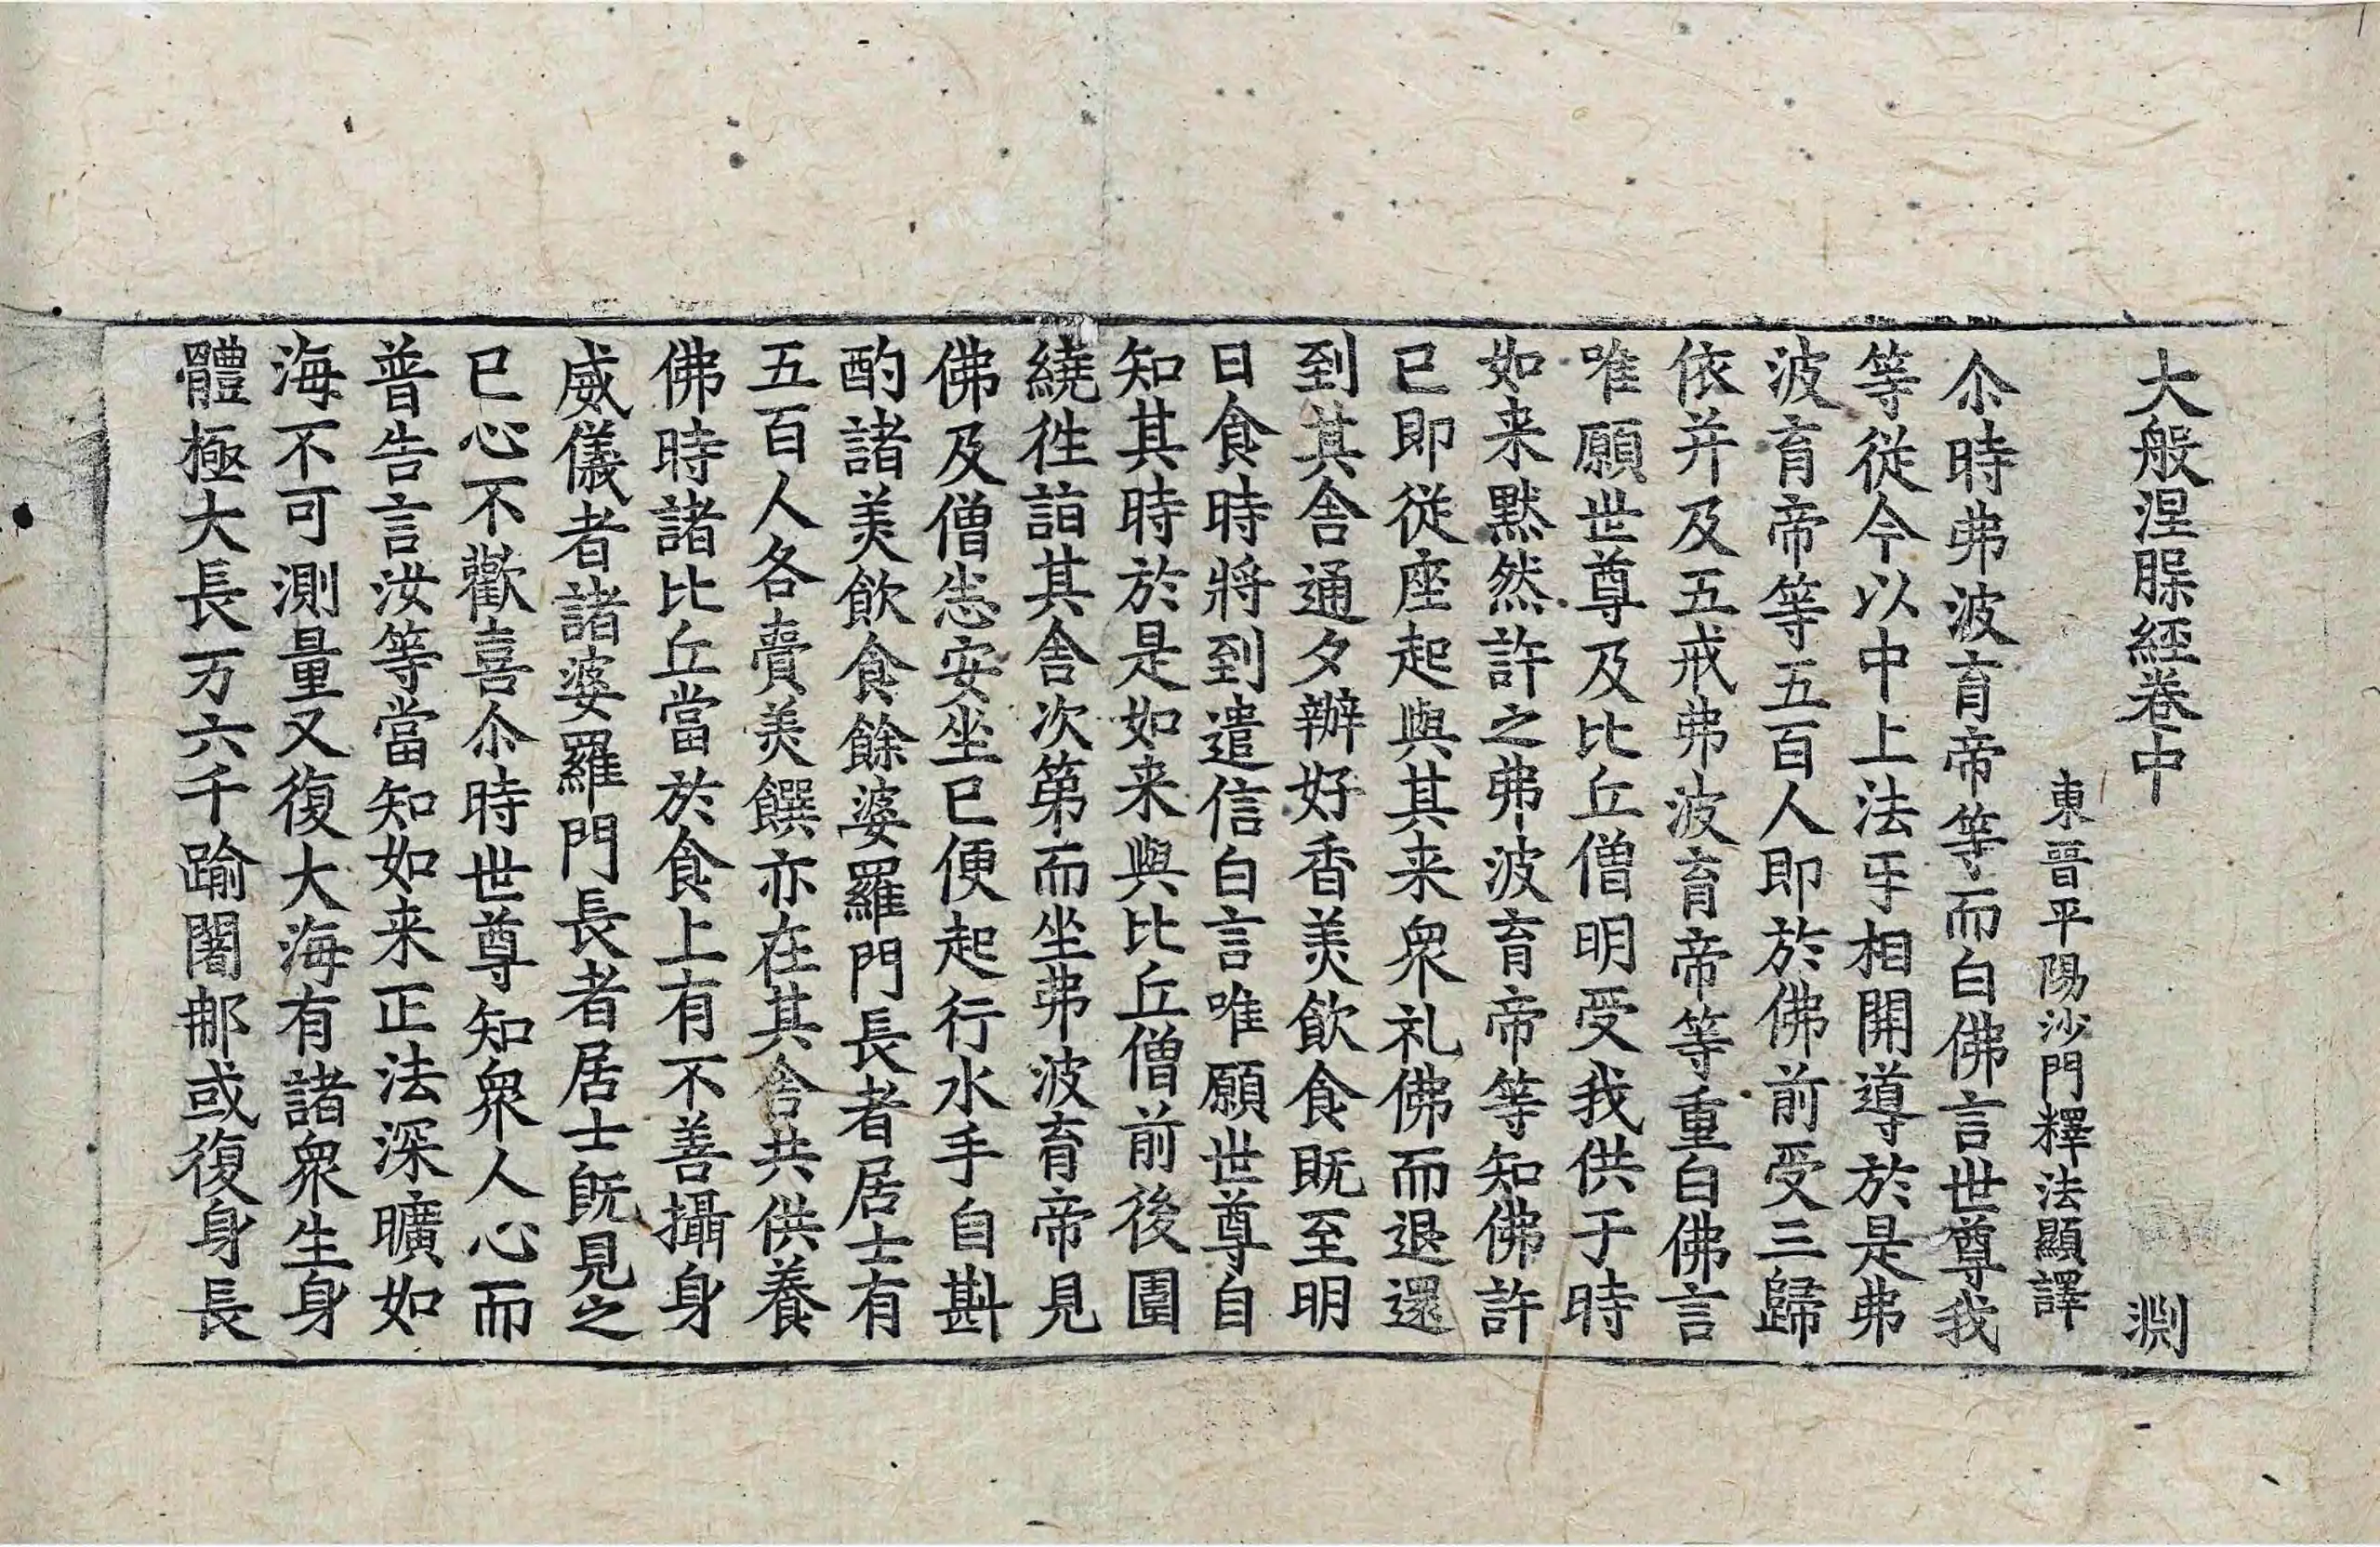 大般涅槃經卷中 淵
東晉平陽沙門釋法顯譯
尒時弗波育帝等而白佛言世尊我
等從今以中上法㸦相開導於是弗
波育帝等五百人即於佛前受三歸
依并及五戒弗波育帝等重白佛言
唯願世尊及比丘僧明受我供于時
如来默然許之弗波育帝等知佛許
已即從座起與其来眾礼佛而退還
到其舎通夕辦好香美飲食既至明
日食時將到遣信白言唯願世尊自
知其時於是如来與比丘僧前後圍
繞徃詣其舎次第而坐弗波育帝見
佛及僧悉安坐已便起行水手自斟
酌諸美飲食餘婆羅門長者居士有
五百人各賷美饌亦在其舎共供養
佛時諸比丘當於食上有不善攝身
威儀者諸婆羅門長者居士旣見之
已心不歡喜尒時世尊知眾人心而
普告言汝等當知如来正法深曠如
海不可測量又復大海有諸眾生身
體極大長万六千踰闍那或復身長